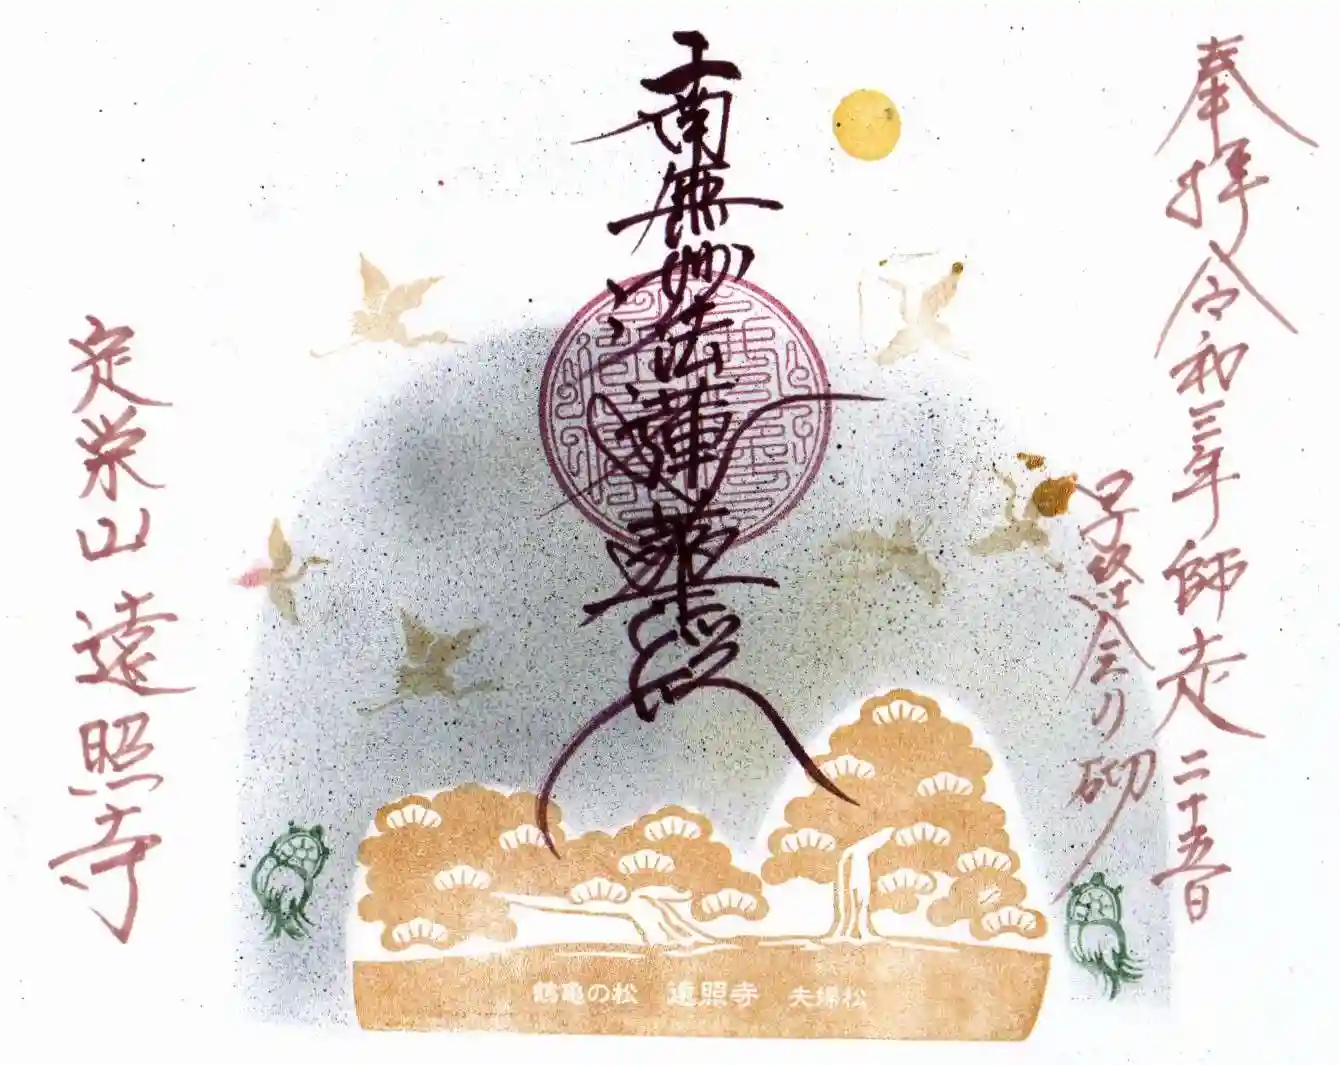 奉拝 令和三年師走二十五日
南無妙法蓮華経
定栄山 遠照寺
鶴亀の松 遠照寺 夫婦松